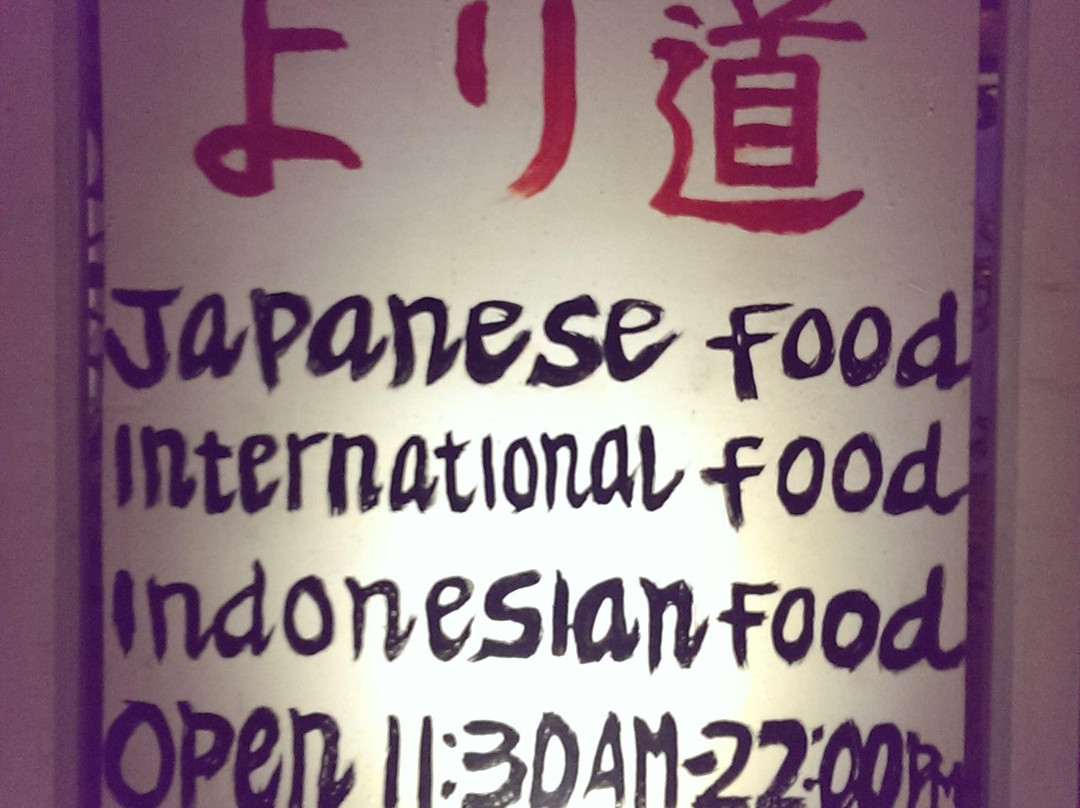 より道
Japanese food
International food
Indonesian Food
Open 11:30AM-22:00PM